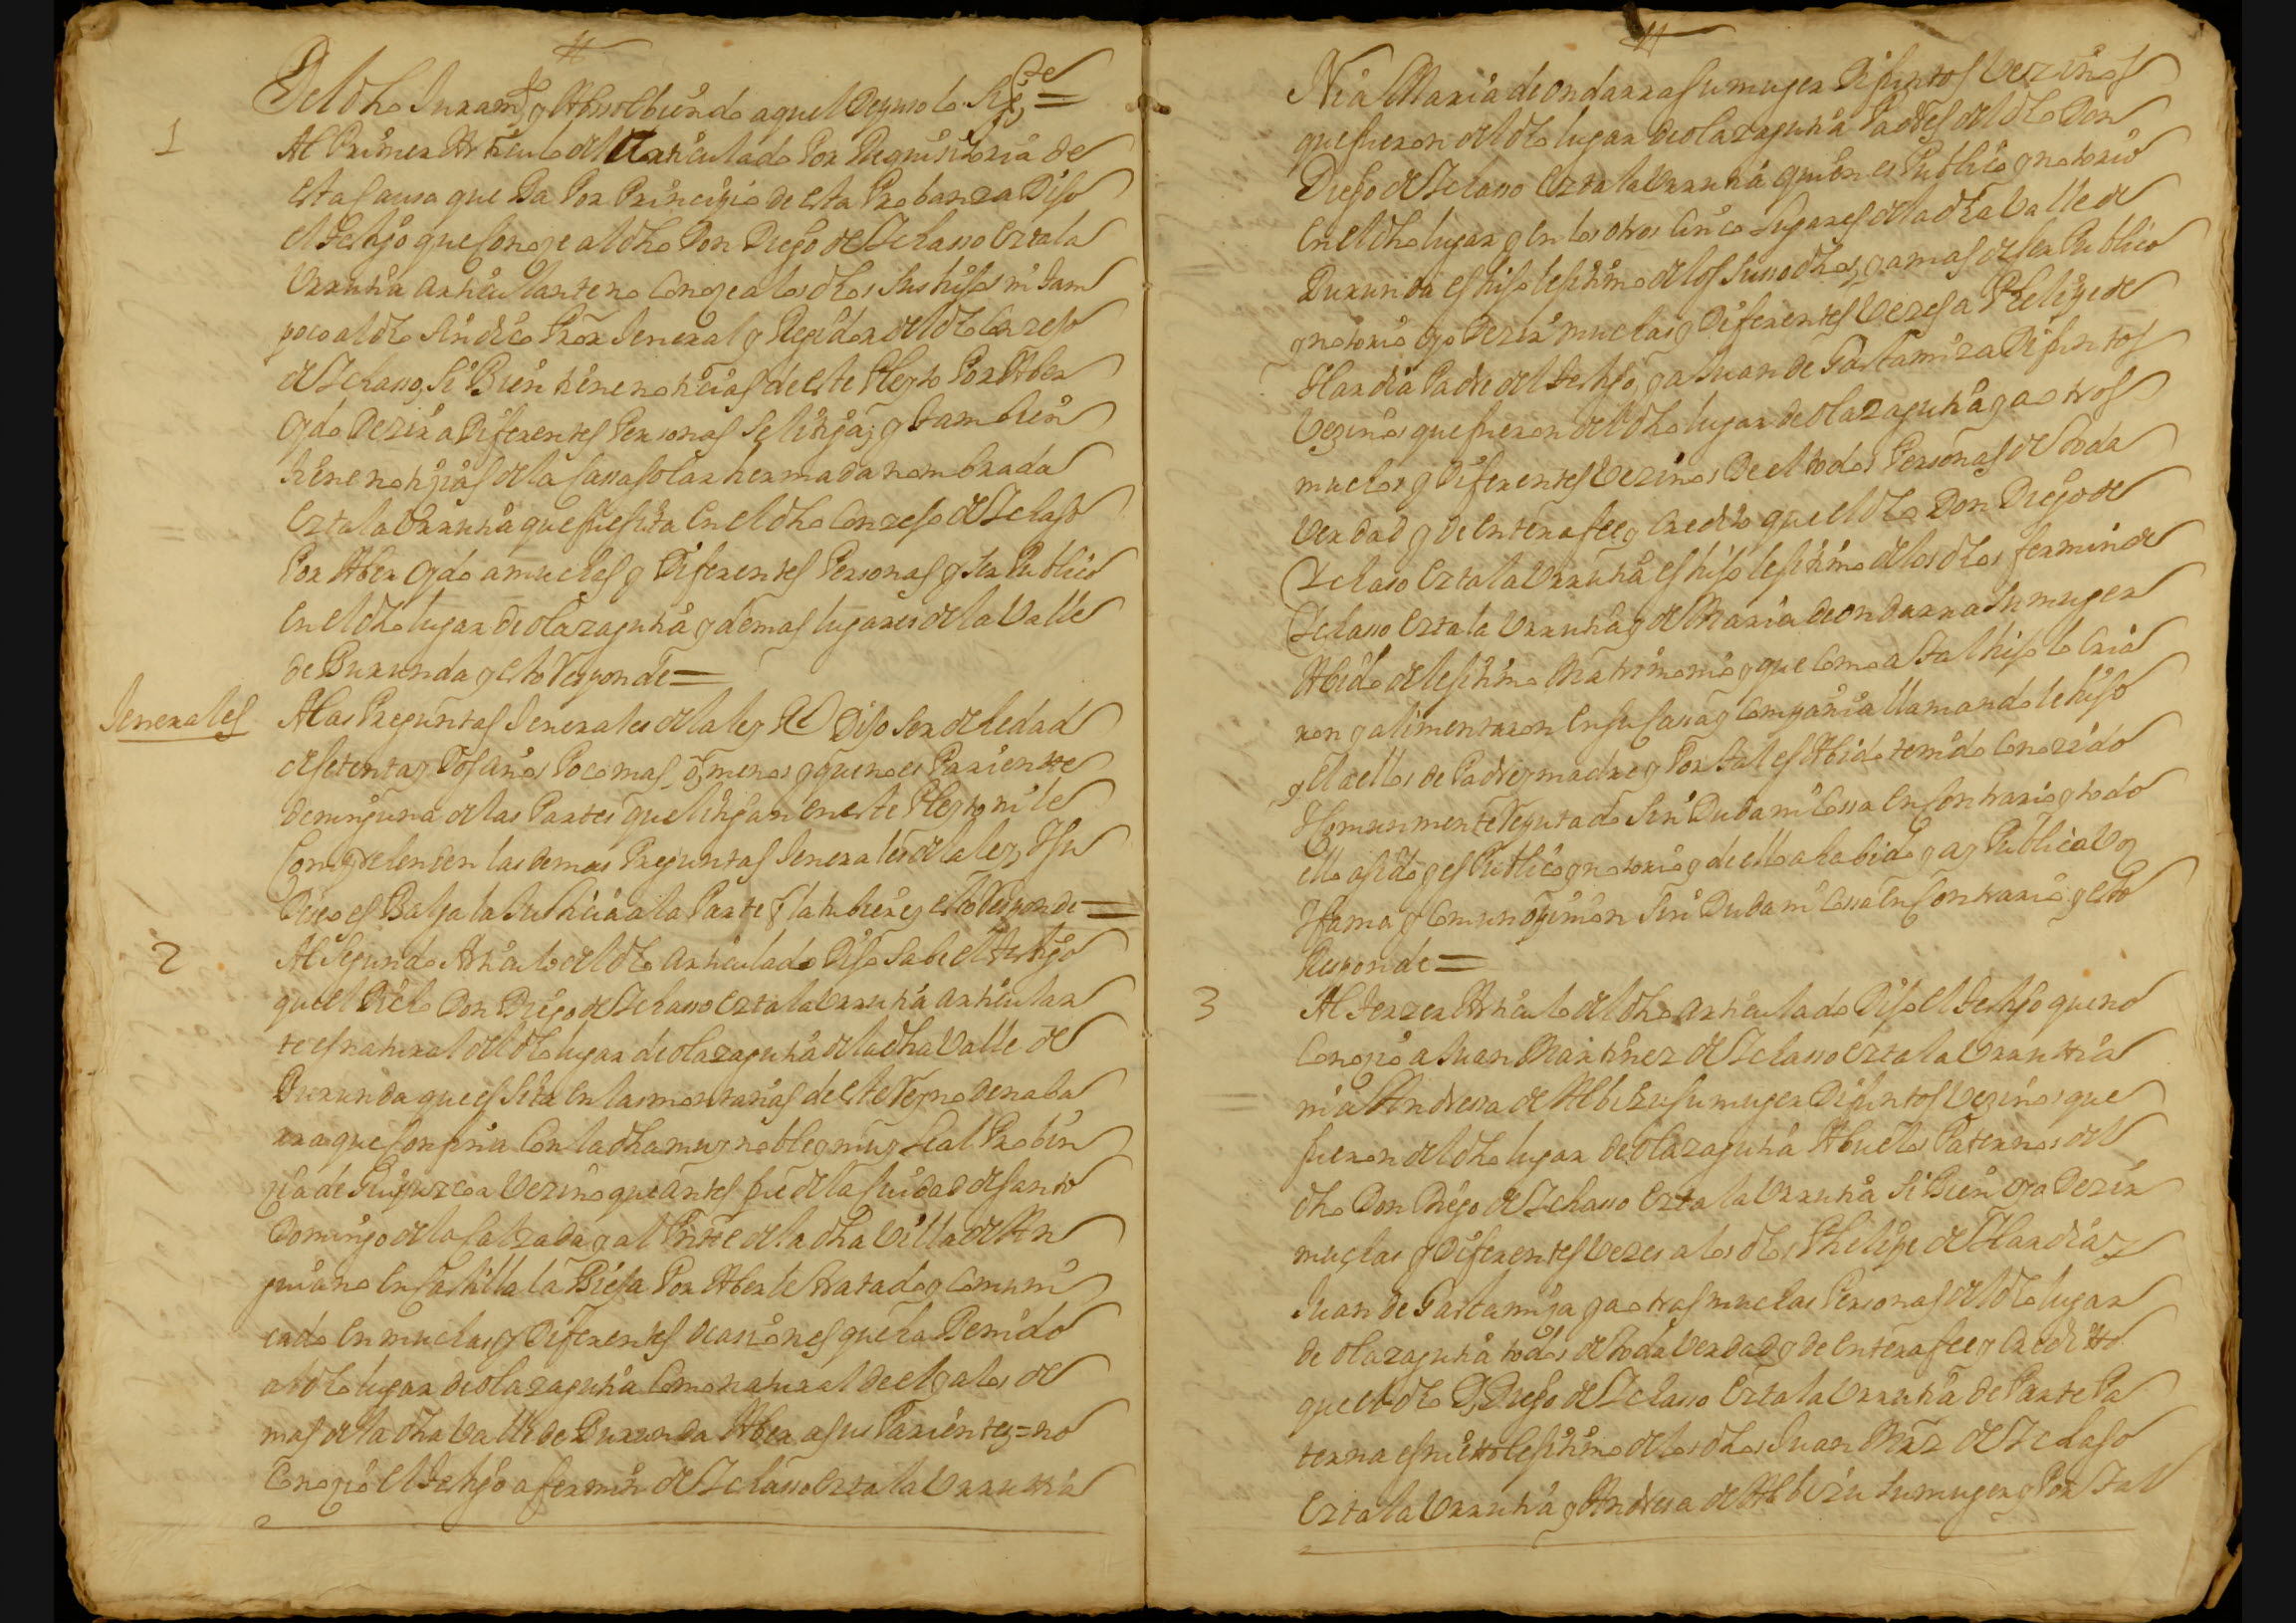 Del dho Juramto y Absolbiendo aquel Depuso lo Sigte =
1 Al Primer Articulo del Articulado Por Requisitoria de
esta Causa que Ba Por Principio de esta Probanza Dijo
el testigo que Conoze al dho Don Diego de Ichasso Eztala
Urrutia articulante no Conoze a los dhos sus hijos ni tam
poco al dho Sindico Pror Jeneral y Regidor del dho Conzejo
de Ichasso, Si Bien tiene noticias de este Pleyto Por Aber
oydo Dezir a Diferentes Personas se litiga; y tambien
tiene notizias de la Cassa solar hermada nombrada
Eztala Urrutia que fue sita en el dho Conzejo de Ichaso
Por Aber oydo a muchos y Diferentes Personas y ser Publico
en el dho lugar de olazagutia y demas lugares de la Valle
de Burunda y esto Responde =
Jenerales A las Preguntas Jenerales de la ley Rl Dijo ser de hedad
de setenta y Dos años Poco mas, o, menos y que no es Pariente
de ninguna de las Partes que litigan en este Pleyto ni le
Comprehenden las demas Preguntas Jenerales de la ley, Y su
Deseo es Balga la Justicia a la Parte q la tubiere y esto Responde =
2 Al Segundo Articulo del dho articulado Dijo Sabe el testigo
que el Dicho Don Diego de Ichasso Eztala Urrutia articulan
te es natural del dho lugar de olazagutia de la dha Valle de
Burunda que es sita en las montañas de este Reyno de naba
rra que Confina Con la dha muy noble y muy Leal Probin
zia de Guipuzcoa Vezino que antes fue de la Ciudad de santo
Domingo de la Calzada y al Presste de la dha Villa de An
guiano en Castilla la Bieja Por Aberle tratado y Comuni
cado en muchas y Diferentes ocasiones que ha Benido
al dho lugar de olazagutia Como natural de el y a los de
mas de la dha Valle de Burunda Aber a sus Parientes = no
Conozio el testigo a fermin de Ichasso Eztala Urrutia
Ni a Maria de ondarra su muger Difuntos Vezinos
que fueron del dho lugar de olazagutia Padres del dho Don
Diego de Ichasso Eztala Urrutia quien es Publico y notorio
en el dho lugar y en los otros Cinco lugares de la dha Valle de
Burunda es hijo lejitimo de los susso dhos, y a mas de ser Publico
y notorio oyo Dezir muchas y Diferentes Vezes a Phelipe de
Mardia Padre del testigo, y a Juan de Gastamiza Difuntos
Vezinos que fueron del dho lugar de olazagutia y a otros
muchos y Diferentes Vezinos de el todos Personas de toda
Verdad y de entera fee y Credito que el dho Don Diego de
Ichaso Eztala Urrutia es hijo lejitimo de los dhos fermin de
Ichasso Eztala Urrutia y de Maria de ondarra su muger
Abido de lejitimo Matrimonio y que Como a tal hijo lo Cria
ron y alimentaron en su Cassa y Compania llamandole hijo
y el a ellos de Padre y madre y Por tal es Abido tenido Conozido
Y Comunmente Reputado sin Duda ni Cossa en Contrario y todo
ello a sido y es Publico y notorio y de ello a habido y ay Publica Voz
Y fama y Comun opinion sin Duda ni Cossa en Contrario y esto
Responde =
3 Al Terzer Articulo del dho articulado Dijo el testigo que no
Conozio a Juan Martinez de Ichasso Eztala Urrutia
ni a Andressa de Albizu su muger Difuntos Vezinos que
fueron del dho lugar de olazagutia Abuelos Paternos del
dho Don Diego de Ichasso Eztala Urrutia si Bien oyo Dezir
muchas y Diferentes Vezes a los dhos Phelipe de Mardia y
Juan de Gastamiza y a otras muchas Personas del dho lugar
de olazagutia todos de toda Verdad y de entera fee y Credito
que el dho Dn Diego de Ichasso Eztala Urrutia de Parte Pa
terna es nieto lejitimo de los dhos Juan Mrz de Ichaso
Eztala Urrutia y Andressa de Albizu su muger y Por tal